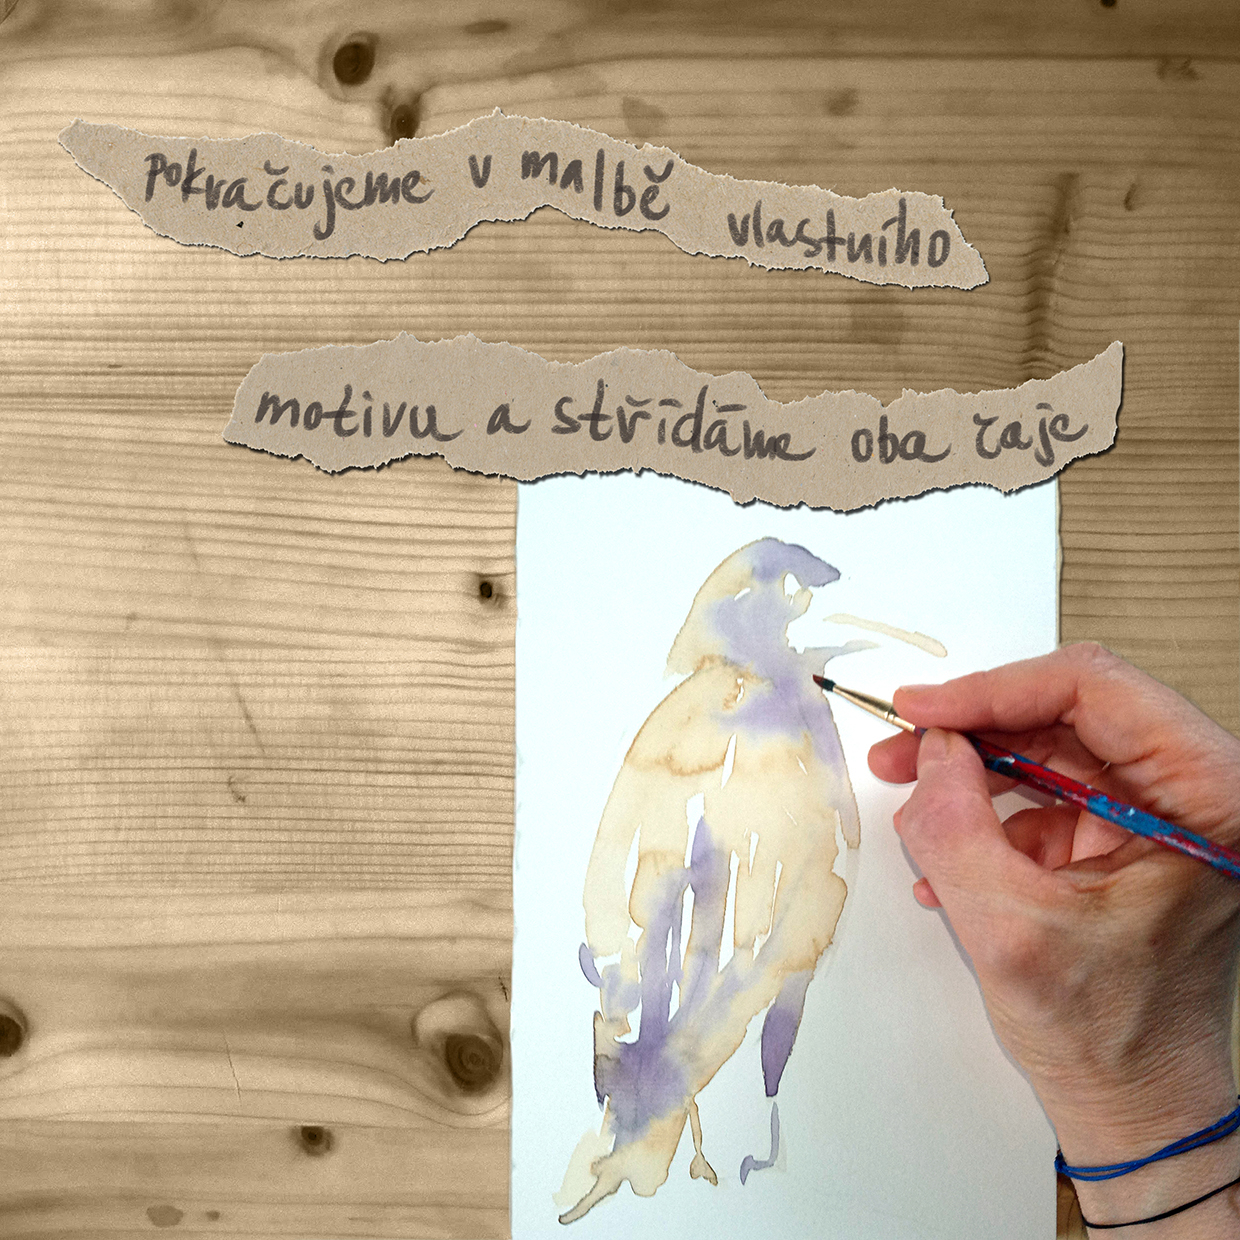 pokračujeme v malbě vlastního
motivu a střídáme oba čaje